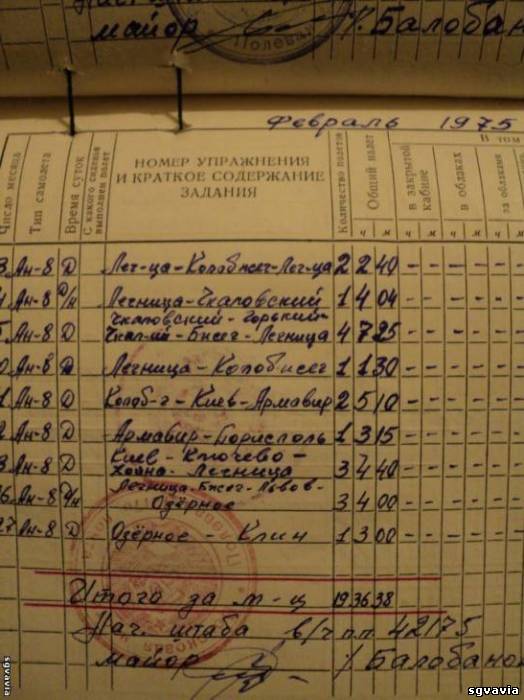 майор
Полева
/ Балобан
Февраль 1975
Число месяца
Тип самолета
Время суток
С какого сиденья выполнен полет
НОМЕР УПРАЖНЕНИЯ
И КРАТКОЕ СОДЕРЖАНИЕ
ЗАДАНИЯ
Количество полетов
Общий налет
В том
в закрытой кабине
в облаках
за облаками
ч м ч м ч м ч
3 Ан-8 Д Лег-ца-Колобжег-Лег-ца 2 2 40 - - - - -
Ан-8 Д/н Легница-Чкаловский 1 4 04 - - - - -
Чкаловский-Горький-
5 Ан-8 Д Чкал-ий-Бжег-Легница 4 7 25 - - - - -
0 Ан-8 Д Легница-Колобжег 1 1 30 - - - - -
1 Ан-8 Д Колоб-г-Киев-Армавир 2 5 10 - - - - -
2 Ан-8 Д Армавир-Борисполь 1 3 15 - - - - -
Киев-Ключево-
3 Ан-8 Д Хойна-Легница 3 4 40 - - - - -
Легница-Бжег-Львов-
6 Ан-8 Д/н Озёрное 3 4 00 - - - - -
27 Ан-8 Д Озёрное-Клин 1 3 00 - - - - -
Итого за м-ц 19 36 38
Нач. штаба в/ч п.п. 42175
майор / Балобано
sgvavia
sgvavia